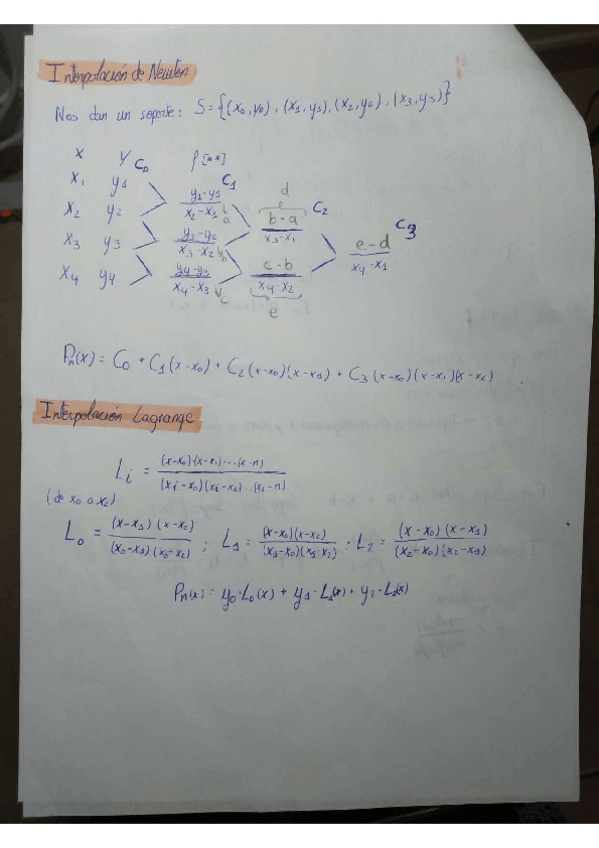 Interpolación de Newton
Nos dan un soporte: S = {(x₀,y₀), (x₁,y₁), (x₂,y₂), (x₃,y₃)}
x y C₀ f[**]
x₁ y₁ C₁
(y₂-y₁)/(x₂-x₁) a d
x₂ y₂ (b-a)/(x₃-x₁) C₂
x₃ y₃ (y₃-y₂)/(x₃-x₂) b (e-d)/(x₄-x₁) C₃
x₄ y₄ (y₄-y₃)/(x₄-x₃) c (c-b)/(x₄-x₂)
e
Pn(x) = C₀ + C₁(x-x₀) + C₂(x-x₀)(x-x₁) + C₃(x-x₀)(x-x₁)(x-x₂)
Interpolación Lagrange
Li = (x-x₀)(x-x₁)...(x-n)/(xi-x₀)(xi-x₁)...(xi-n)
(de x₀ a x₂)
L₀ = (x-x₁)(x-x₂)/(x₀-x₁)(x₀-x₂) ; L₁ = (x-x₀)(x-x₂)/(x₁-x₀)(x₁-x₂) . L₂ = (x-x₀)(x-x₁)/(x₂-x₀)(x₂-x₁)
Pn(x) = y₀·L₀(x) + y₁·L₁(x) + y₂·L₂(x)